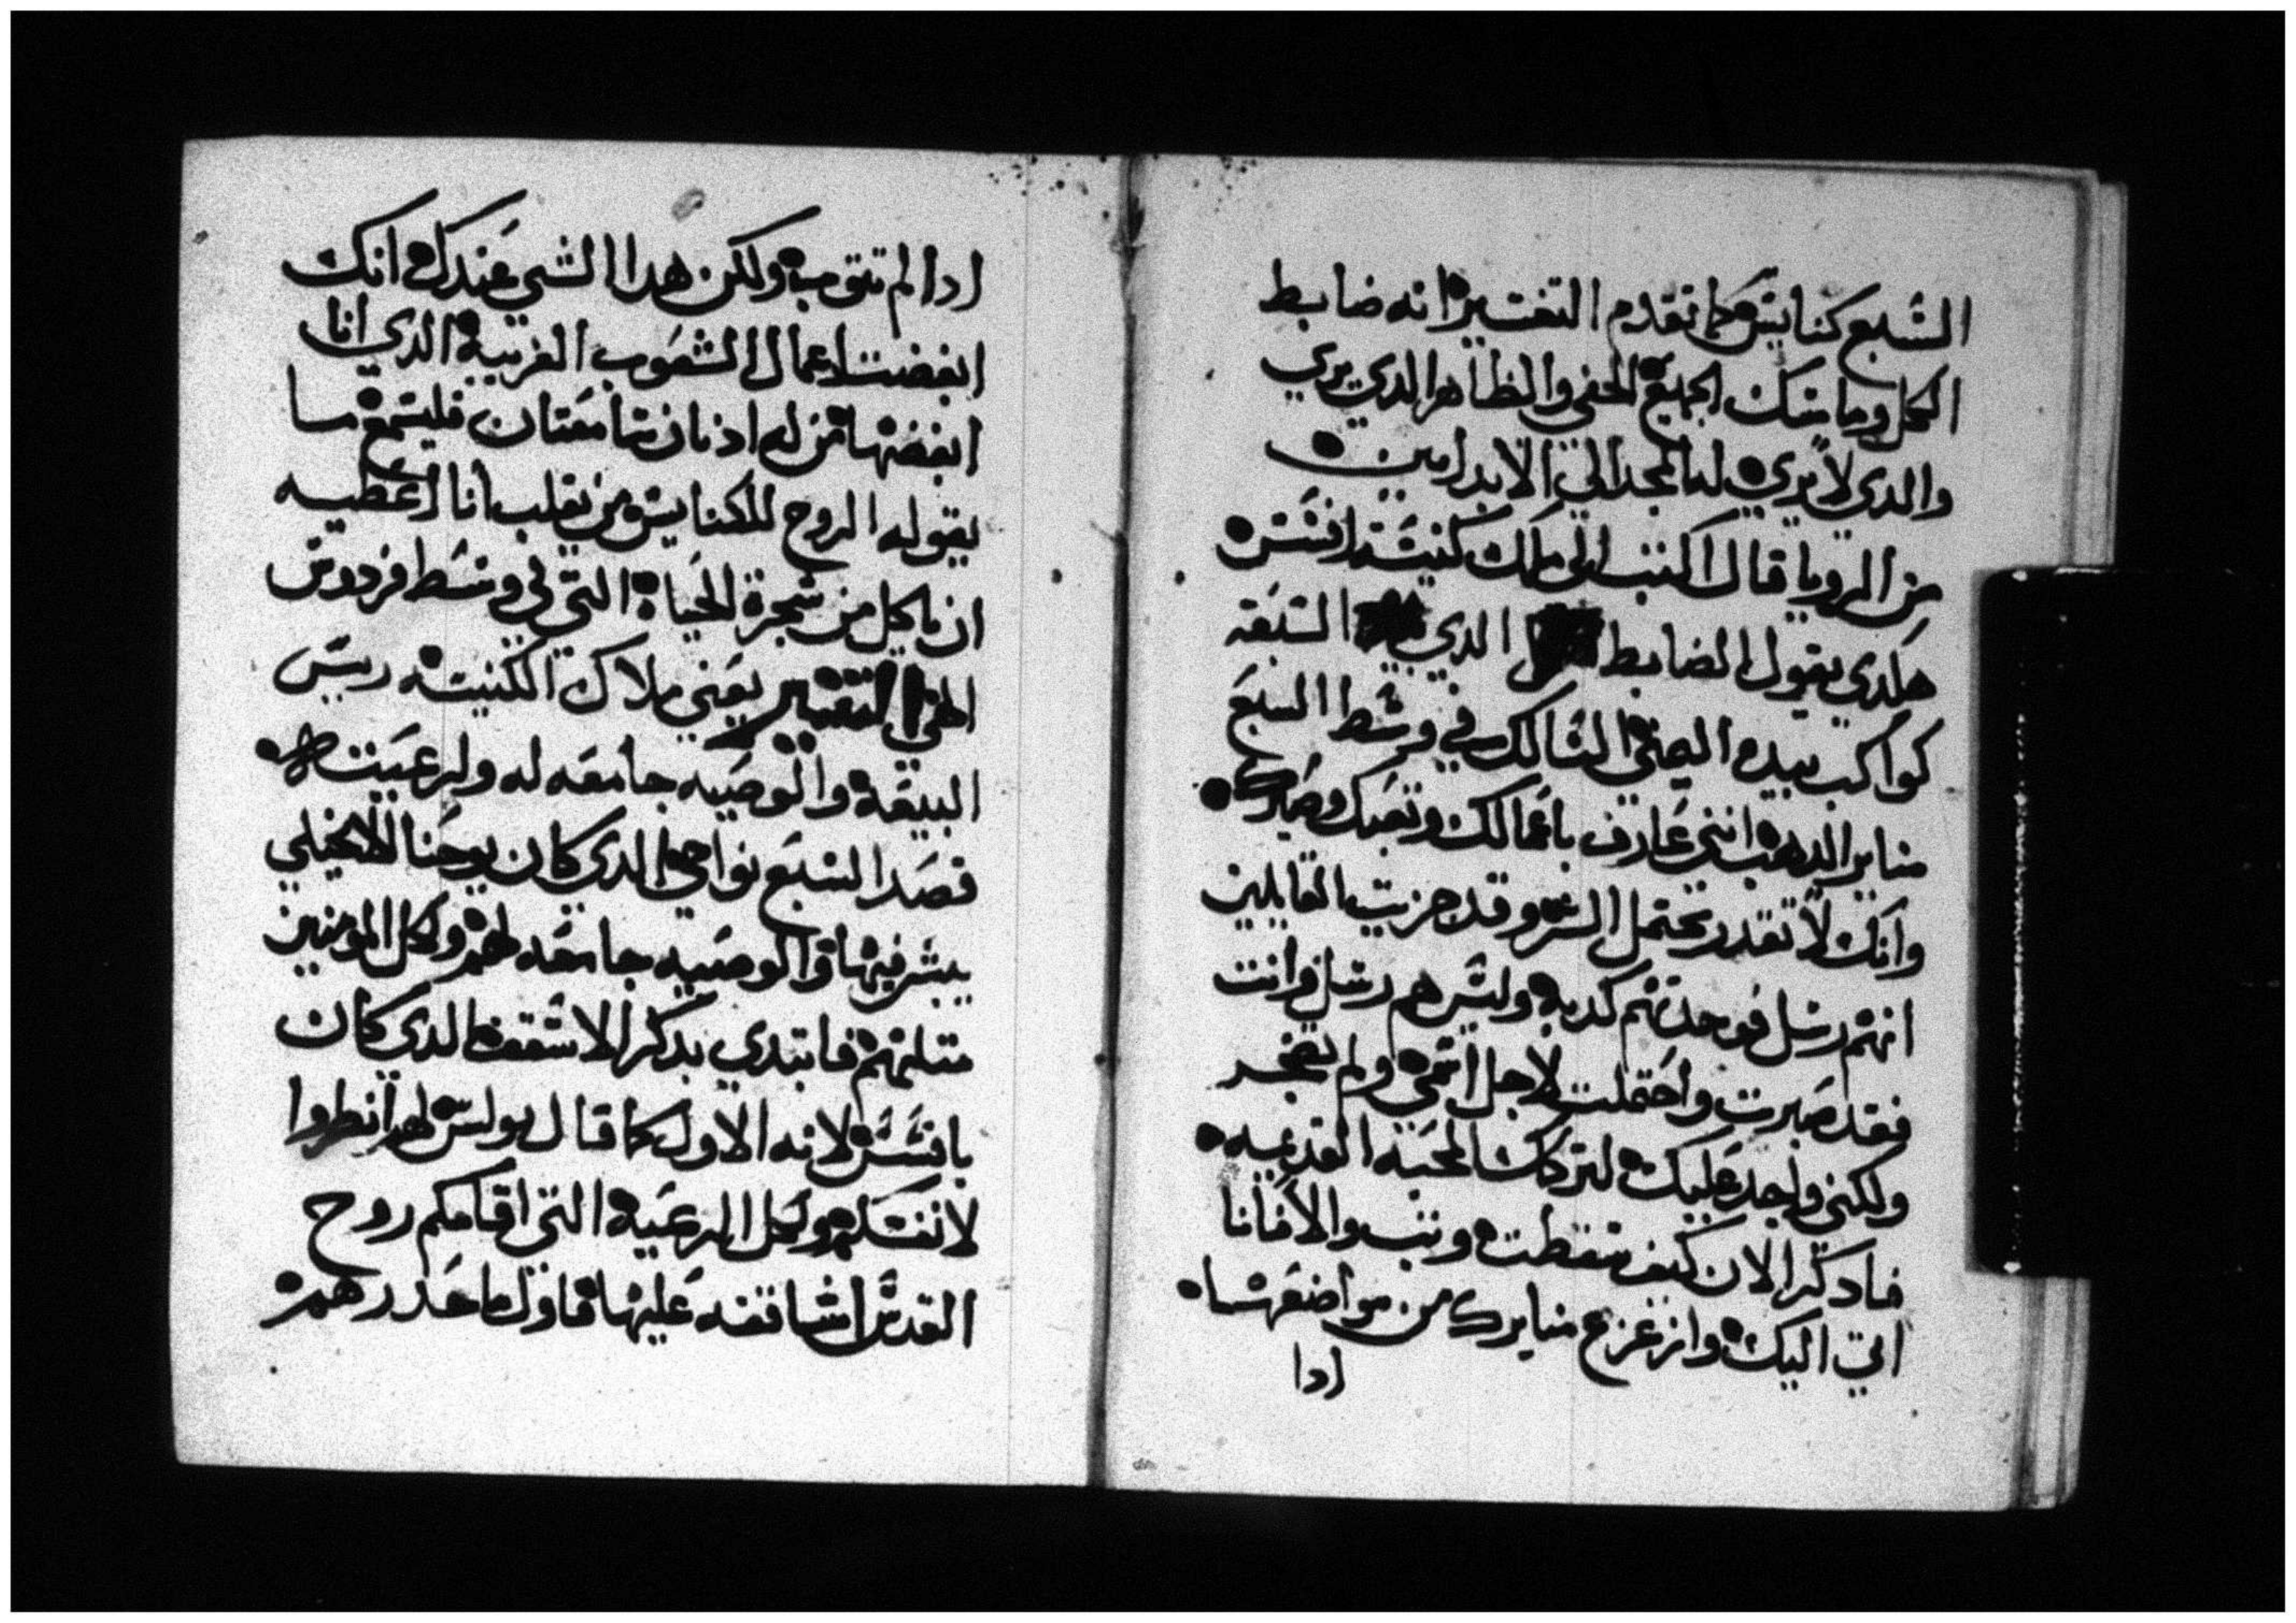 السبع كنايس كما تقدم التفسير انه ضابط
الكل وماسك الجميع الخفي والظاهر الدي يري
والدي لا يري له المجد الي الابد امين
من الرويا قال اكتب الي ملاك كنيسة افسس
هكدي يقول الضابط الدي السبعه
كواكب بيده اليمني السالك في وسط السبع
مناير الدهب انني عارف باعمالك وتعبك وصبرك
وانك لا تقدر تحتمل الشر وقد جربت القايلين
انهم رسل فوجدتهم كدبه وليس هم رسل وانت
فقد صبرت واحتملت لاجل اسمي ولم تضجر
ولكني واجد عليك لتركك المحبه القديمه
فادكر الان كيف سقطت وتب والا فانا
اتي اليك وازعزع منايرك من مواضعها
ادا
ادا لم تتوب ولكن هدا الشي عندك انك
ابغضت اعمال الشعوب الغريبه الدي انا
ابغضتها من له ادنان سامعتان فليسمع ما
يقوله الروح للكنايس من يغلب انا اعطيه
ان ياكل من شجرة الحياه التي في وسط فردوس
الهي التفسير يعني ملاك الكنيسه ريس
البيعه والوصيه جامعه له ولرعيته
قصد السبع نواحي الدي كان يوحنا الانجيلي
يبشر فيها والوصيه جامعه لهم ولكل المومنين
متلهم فابتدي بدكر الاسقف الدي كان
بافسس لانه الاول كما قال بولس لهم انظروا
لانفسكم ولكل الرعيه التي اقامكم روح
القدس اساقفه عليها فاول ما حدرهم